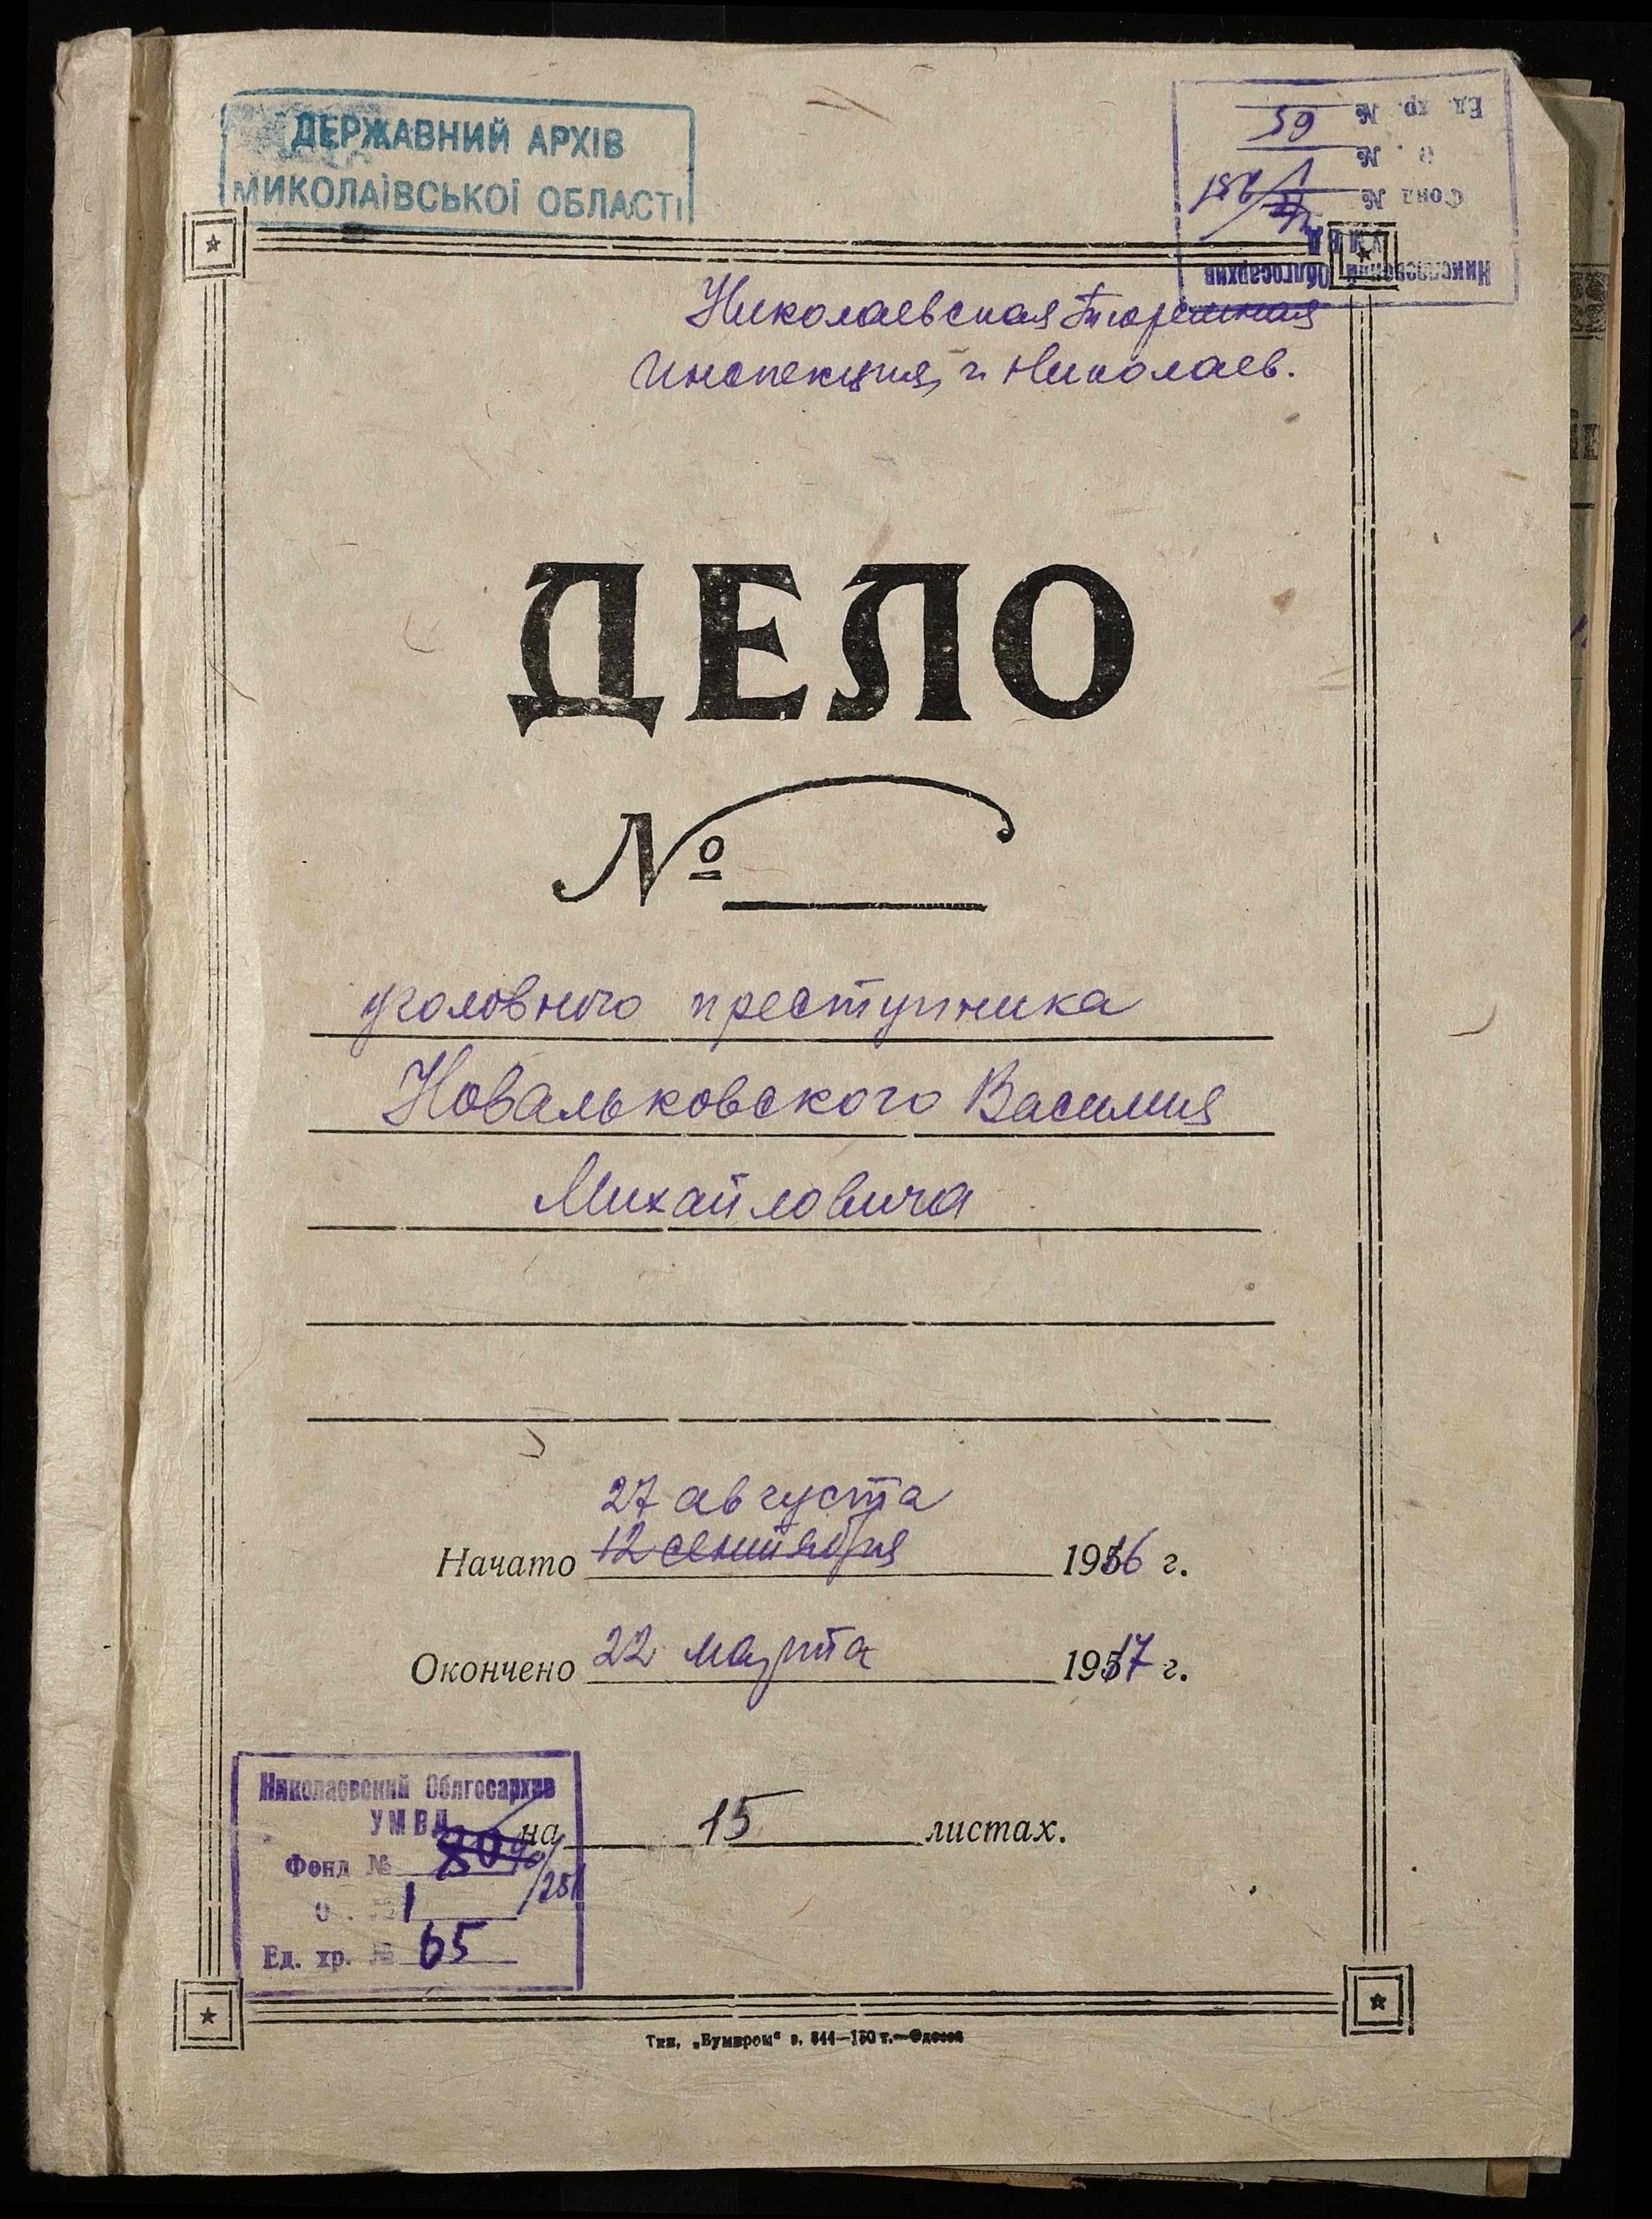 ДЕРЖАВНИЙ АРХІВ
МИКОЛАЇВСЬКОЇ ОБЛАСТІ
Николаевский Облгосархив
УМВД
Фонд № 251
О . № 1
Ед. хр. № 65
Николаевская тюремная
инспекция, г. Николаев.
ДЕЛО
№
уголовного преступника
Новальковского Василия
Михайловича
27 августа
Начато 12 сентября 1916 г.
Окончено 22 марта 1917 г.
на 15 листах.
Николаевский Облгосархив
УМВД
Фонд № 80 /251
О . № 1
Ед. хр. № 65
Тип. „Бумпром“ з. 844—150 т.—Одесса